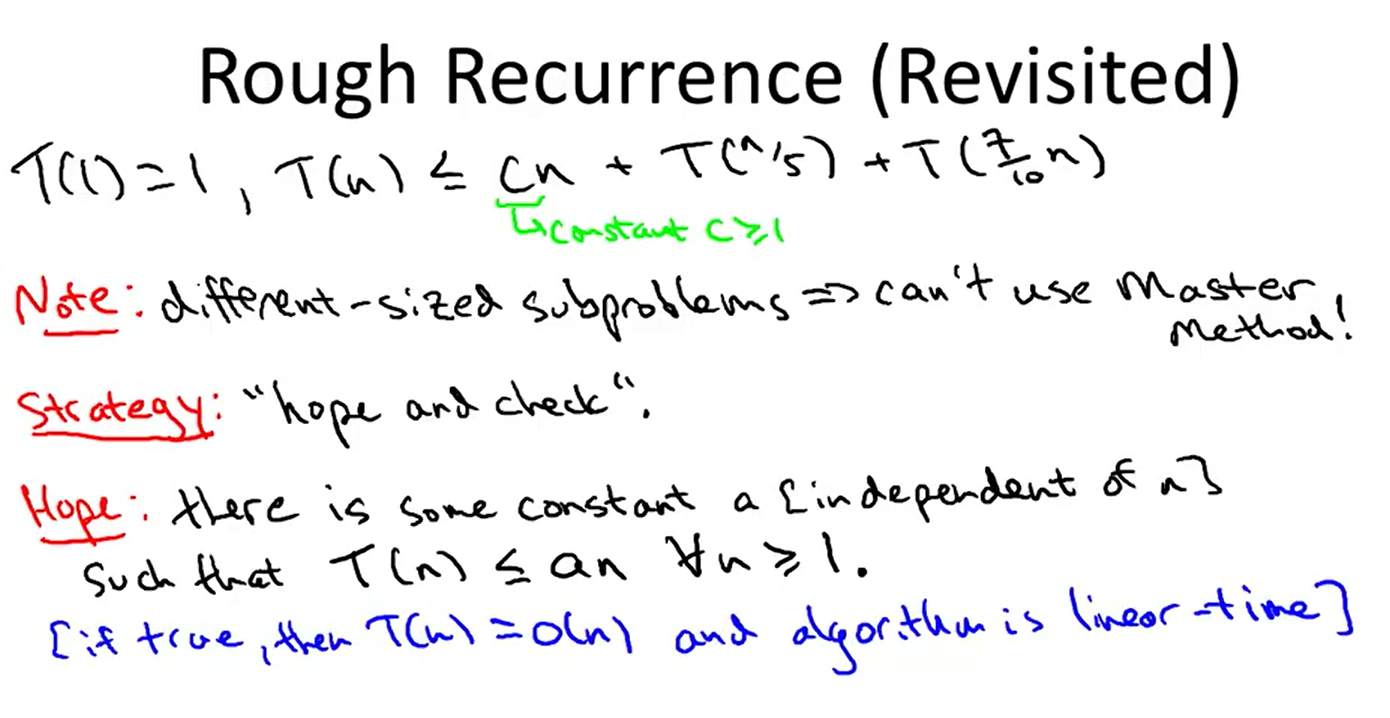 Rough Recurrence (Revisited)
T(1) = 1, T(n) ≤ cn + T(n/5) + T(7/10 n)
↳ constant c ≥ 1
Note: different-sized subproblems => can't use Master
Method!
Strategy: "hope and check".
Hope: there is some constant a [independent of n]
such that T(n) ≤ an ∀n ≥ 1.
[if true, then T(n) = O(n) and algorithm is linear-time]